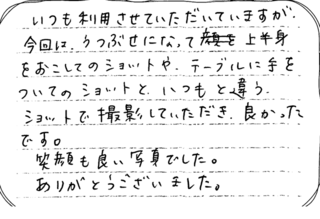 いつも利用させていただいていますが、
今回は、うつぶせになって上半身
をおこしてのショットや、テーブルに手を
ついてのショットと、いつもと違う、
ショットで撮影していただき、良かった
です。
笑顔も良い写真でした。
ありがとうございました。